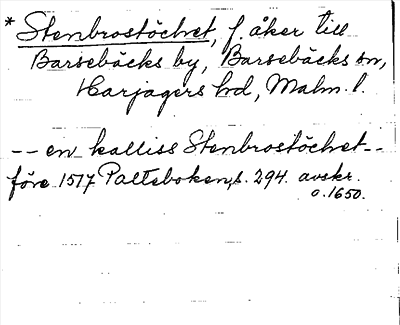 * Stenbrostöchet, f. åker till
Barsebäcks by, Barsebäcks sn,
Harjagers hd, Malm. l.
-- en kalliss Stenbrostöchet --
före 1517 Palteboken, s. 294. avskr.
o. 1650.